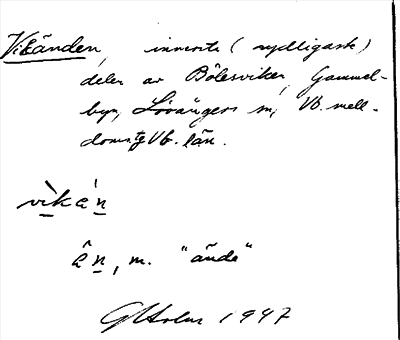 Vikänden, innersta (sydligaste)
delen av Bölesviken, Gammel-
byn, Lövångers sn, Vb. mell-
domst, Vb. län.
vìkán
ân, m. "ände"
G Holm 1947